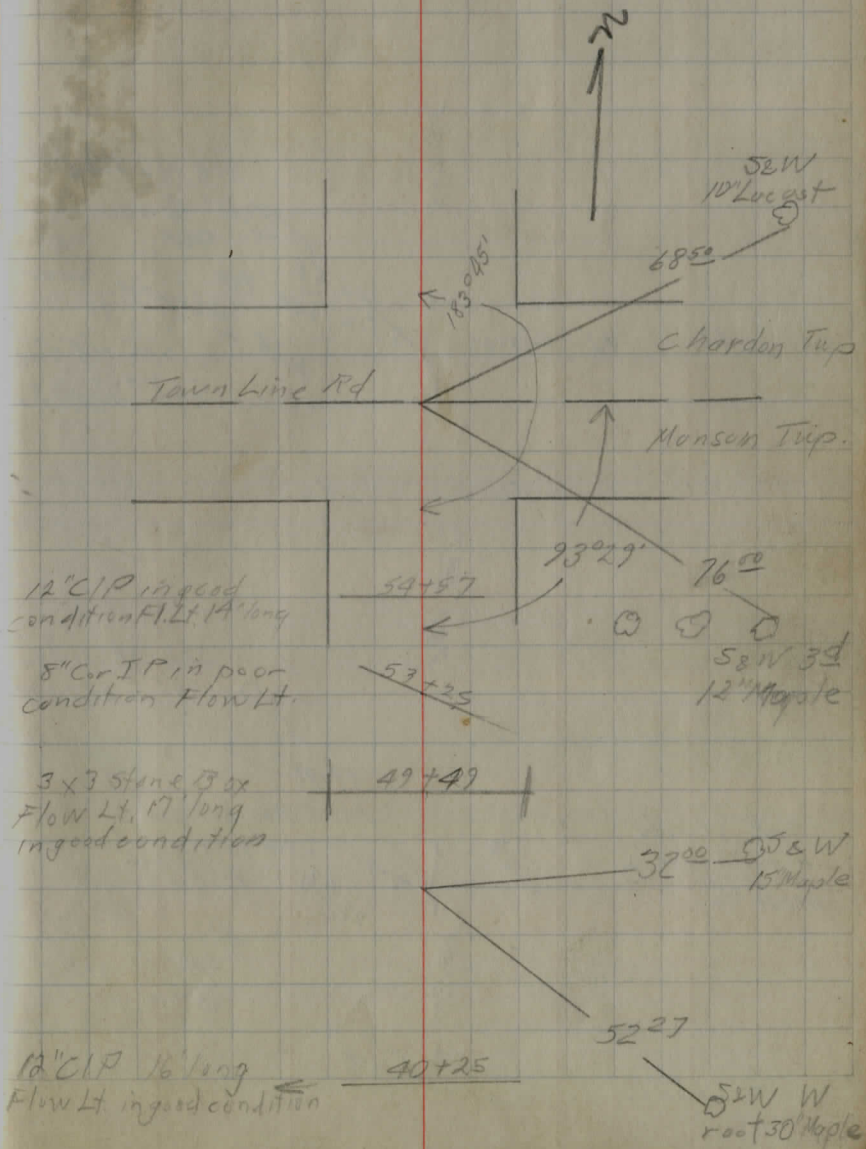 N
S&W
10" Locast
68 50
183°45'
Chardon Twp
Town Line Rd
Monson Twp.
93°29'
76 00
12" CIP in good
condition Fl. Lt. 14' long
54+57
S&W 3d
12" Maple
8" Cor. I P in poor
condition Flow Lt.
53+25
3 x 3 Stone Box
Flow Lt. 17' long
in good condition
49+49
32 00
S & W
15 Maple
52 27
12" CIP 16' long
Flow Lt. in good condition
40+25
S&W W
root 30" Maple